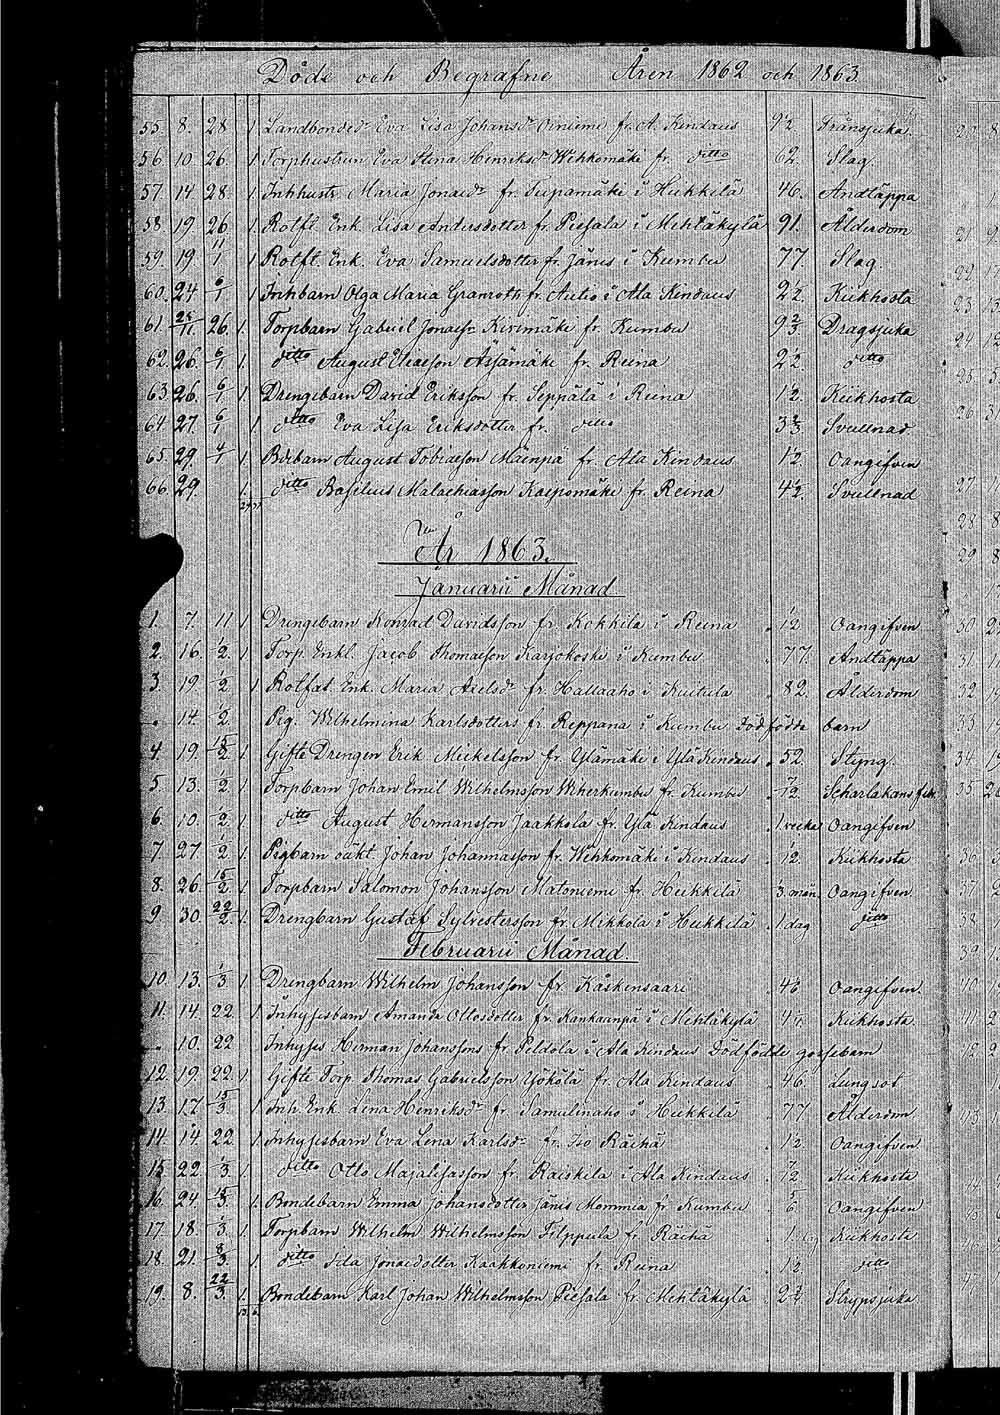 Döde och Begrafne Åren 1862 och 1863
55. 8. 28 1 Landbonded. Eva Lisa Johansdr Oiniemi fr. A. Kindaus 9½ Tränsjuka.
56. 10. 26. 1 Torphustrun Eva Stina Henriksdr Wehkomäki fr. ditto 62. Slag.
57. 14. 28. 1. Inhhustr. Maria Jonaedr fr. Tupamäki i Heikkilä 46. Andtäppa
58. 19. 26 1. Rotft. Enk. Lisa Andersdotter fr. Piesala i Mehtäkylä 91. Ålderdom
59. 19 11/1 1 Rotft. Enk. Eva Samuelsdotter fr. Jänis i Kumbu 77. Slag.
60. 24 6/1 1 Inhbarn Olga Maria Granroth fr. Autio i Ala Kindaus 2½. Kikhosta
61. 25/11. 26. 1. Torpbarn Gabriel Jonaess. Kivimäki fr. Kumbu 9⅔ Dragsjuka
62. 26. 6/1. 1. ditto August Eliaeson Äijämäki fr. Reina 2½. ditto
63. 26. 6/1 1. Drengebarn David Eriksson fr. Seppälä i Reina 1½. Kikhosta
64. 27. 6/1 1. ditto Eva Lisa Eriksdotter fr. ditto 3⅔. Svullnad
65. 29. 4/1 1. August Tobiaeson Mäenpä fr. Ala Kindaus ½. Oangifven
66. 29. 1. ditto Basilius Malachiasson Kaipomäki fr. Reina 4½. Svullnad
År 1863.
Januarii Månad
1. 7. 11 1 Drengebarn Konrad Davidsson fr Kokkila i Reina ½ Oangifven
2. 16. ½. 1 Torp. Enkl. Jacob Thomaeson Karjokoski i Kumbu 77. Andtäppa
3. 19. ½ 1 Rotfat. Enk. Maria Axelsdr fr. Hallaaho i Kuitula 82. Ålderdom
14. ½. Pig. Wilhelmina Karlsdotters fr. Reppana i Kumbu Dödfödda barn
4. 19. 15/2. 1. Gifte Drengen Erik Mickelsson fr. Ylämäki i Ylä Kindaus 52. Styng.
5 13. ½. 1 Torpbarn Johan Emil Wilhelmsson Wiherkumbu fr. Kumbu 7/12. Scharlakansfeb.
6. 10. ½. 1. ditto August Hermansson Jaakkola fr. Ylä Kindaus 1 vecka Oangifven
7. 27. 1. Pigbarn oäkt. Johan Johannasson fr. Wehkomäki i Kindaus ½. Kikhosta
8. 26. 15/2. 1 Torpbarn Salomon Johansson Matoniemi fr. Heikkilä 3. mån. Oangifven
9. 30. 22/2. 1. Drengbarn Gustaf Sylvestersson fr. Mikkola i Heikkilä 1 dag ditto
Februarii Månad.
10. 13. ⅓ 1. Drengbarn Wilhelm Johansson fr. Kåskensaari Oangifven
11. 14. 22. 1. Inhysesbarn Amanda Ottosdotter fr. Kankaanpä i Mehtäkylä Kikhosta.
10. 22 Inhyses Herman Johanssons fr. Peldola i Ala Kindaus Dödfödde gossebarn
12. 19. 22. 1. Gifte Torp. Thomas Gabrielsson Yökölä fr. Ala Kindaus 46. Lungsot
13. 17. 15/3. 1. Inh. Enk. Lena Henriksdr fr. Samulinaho i Heikkilä 77. Ålderdom
14. 14. 22. 1. Inhysesbarn Eva Lena Karlsdr fr. Iso Räihä ½ Oangifven
15 22 ⅓. 1. ditto Otto Majalisasson fr. Raiskila i Ala Kindaus 7/12 Kikhosta
16. 24. 15/3. 1. Bondebarn Emma Johansdotter Jänis Mommia fr. Kumbu 5/6. Oangifven
17. 18. ⅓. 1. Torpbarn Wilhelm Wilhelmsson Filppula fr. Räihä Kikhosta
18. 21. 8/3. 1. ditto Ida Jonaedotter Kaakkoniemi fr. Reina ½ ditto
19. 8. 22/3. 1. Bondebarn Karl Johan Wilhelmsson Piesala fr. Mehtäkylä Strypsjuka